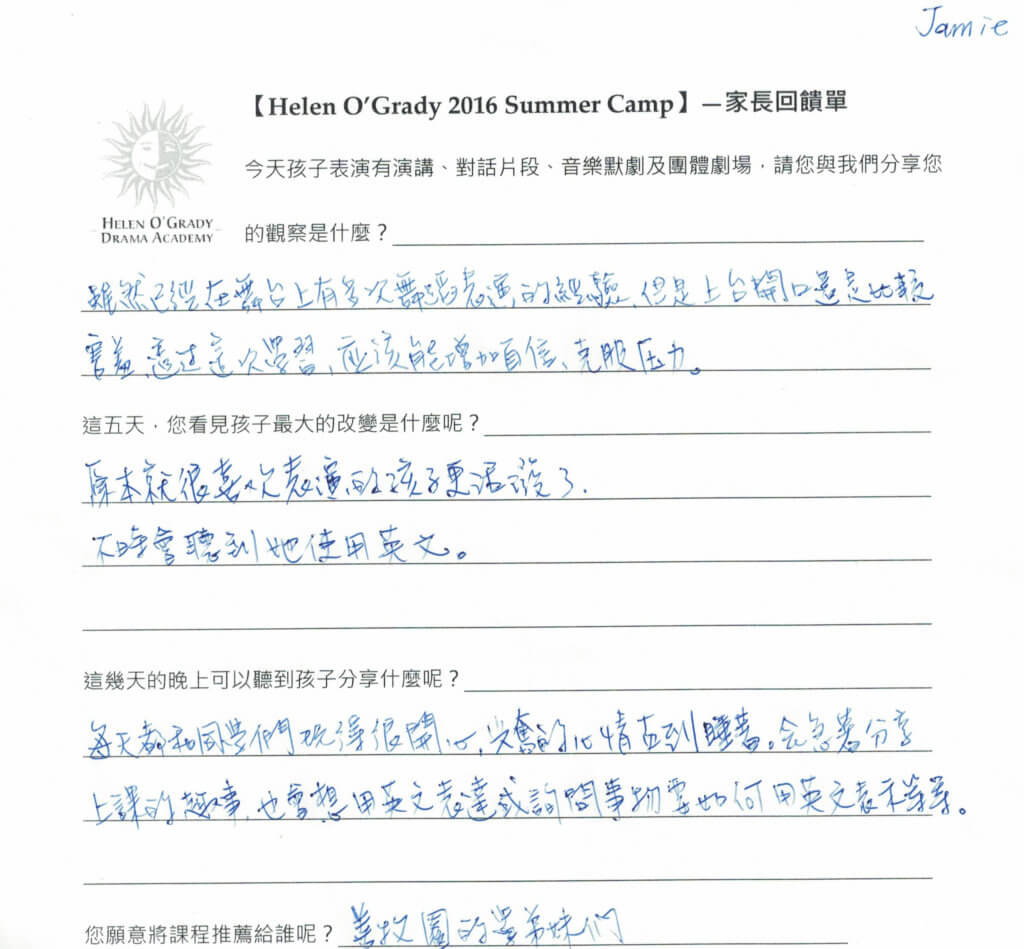 Jamie
【Helen O'Grady 2016 Summer Camp】—家長回饋單
今天孩子表演有演講、對話片段、音樂默劇及團體劇場，請您與我們分享您
HELEN O'GRADY
DRAMA ACADEMY
的觀察是什麼？
雖然已經在舞台上有多次舞蹈表演的經驗，但是上台開口還是比較
害羞，透過這次學習，應該能增加自信、克服压力。
這五天，您看見孩子最大的改變是什麼呢？
原本就很喜欢表演的孩子更活潑了，
不時會聽到她使用英文。
這幾天的晚上可以聽到孩子分享什麼呢？
每天都和同學們玩得很開心，興奮的心情直到睡著。会急著分享
上課的趣事，也會想用英文表達或詢問事物要如何用英文表示等等。
您願意將課程推薦給誰呢？
的學弟妹們